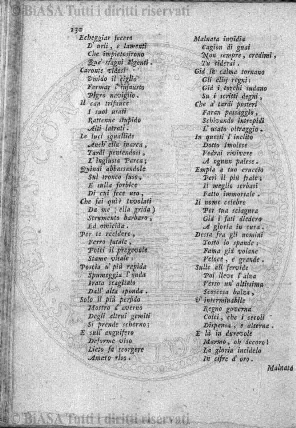 © BIASA Tutti i diritti riservati
230
Echeggiar fecero
D'urli, e lamenti
Che impietosirono
Que' stagni algenti.
Caronte videsi
Umido il ciglio
Fermar l'infausto
Nero naviglio.
Il can trifauce
I suoi usati
Rattenne stupido
Alti latrati.
Le luci squallide
Anch'ella immota
Tardi pentendosi,
L'ingiusta Parca;
Quindi abbassandole
Sul tronco fuso,
E sulla forbice
Di chi fece uso,
Che fai qui? tuvolati
Da me, ella grida)
Strumento barbaro,
Ed omicida.
Per te recidere,
Ferro fatale,
Potei il pregevole
Stame vitale.
Poscia a' più rapida
Spumeggia l'onda
Irata scagliato
Dall'alta sponda.
Solo il più perfido
Mostro d'averno
Degli altrui gemiti
Si prende scherno;
E sull'anguifero
Deforme viso
Lieto fa scorgere
Amaro riso.
Malnata invidia
Cagion di guai
Non sempre, credimi,
Tu riderai.
Già in calma tornano
Gli elisj regni:
Già i torchi sudano
Su i scritti degni.
Che a' tardi posteri
Faran passaggio,
Schivando intrepidi
L'usato oltraggio.
In questi l'inclito
Dotto imolese
Vedrai rivivere
A ognun palese.
Empia a tuo cruccio
Perì il più frale;
Il meglio serbasi
Fatto immortale.
Il nome celebre
Per tua sciagura
Già i fati alzaro
A gloria to cura.
Desta fra gli uomini
Tosto si spande;
Fama già volane
Veloce, e grande.
Sulle ali fervide
Poi lieve l'alza
Verso un'altissima
Scoscesa balza,
U' interminabile
Regno governa
Colei, che i secoli
Dispensa, e alterna.
E là in durevole
Marmo, oh decoro!
La gloria incidelo
In cifre d'oro.
Malnata
© BIASA Tutti i diritti riservati